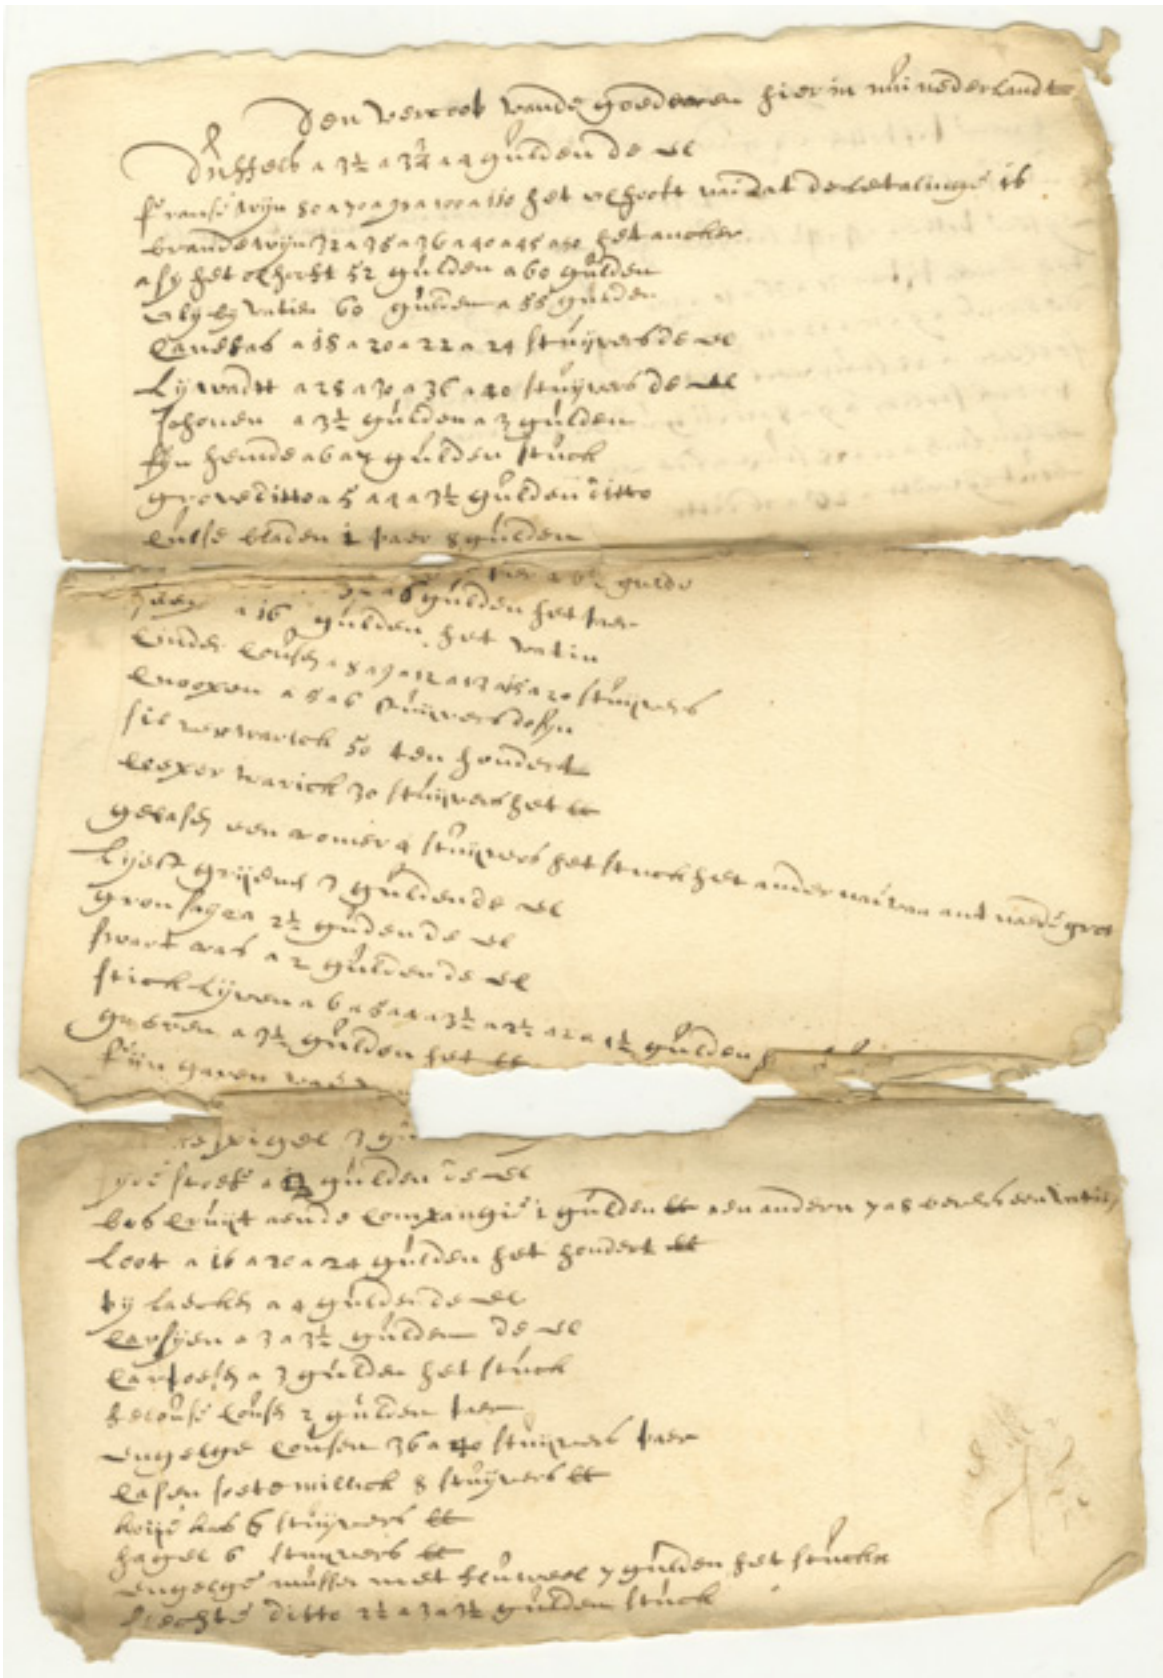 Den vercoob vande goederen hier in nui nederlandt
Duffels a 3½ a 3¾ a 4 gulden de el
franse wijn 80 a 90 a 100 a 110 het ocshooft naudat de betalinge is
brandewijn 32 a 35 a 36 a 40 a 45 a 50 het ancker
asij het ocshoft 52 gulden a 60 gulden
60 gulden a 55 gulden
Canefas a 18 a 20 a 22 a 24 stuijvers de el
Lijwadtt a 28 a 30 a 36 a 40 stuijvers de el
schonen a 3½ gulden a 3 gulden
fijn hemde a 6 a 7 gulden stuck
grove ditto a 5 a 4 a 3½ gulden ditto
bladen 1 paer 8 gulden
gulde
a 6 gulden het paer
Zeep a 16 gulden het vatin
Cinder cousen a 8 a 9 a 12 a 13 a 15 a 20 stuijvers
Cnoopen a 5 a 6 stuijvers dosijn
silverwarick 50 ten hondert
Coper warick 30 stuijvers het lb
gelasen een romer 4 stuijvers het stuck het ander nae
Lijst grijens 3 gulden de el
gron saij 2a 2½ guden de el
swart ras a 2 gulden de el
stick lijven a 6 a 5 a 4 a 3½ a 2½ a 2 a 1½ gulden
gaeren a 3½ gulden het lb
fijn garen
spigel 3 gu
stoef a gulden de el
bos cruijt aende Compangie 1 gulden lb aen andern 7 a 8 bevers een vatie
Loot a 16 a 20 a 24 gulden het hondert lb
pij laecken a 4 gulden de el
Carsijen a 3 a 3½ gulden de el
Capoesen a 3 gulden het stuck
cousen 2 gulden paer
engelse cousen 36 a 40 stuijvers paer
Casen soete millick 8 stuijvers lb
koije kas 6 stuijvers lb
hagel 6 stuijvers lb
engelse mussen met fluweel 7 gulden het stuck
slechte ditto 2½ a 3 a 3½ gulden stuck